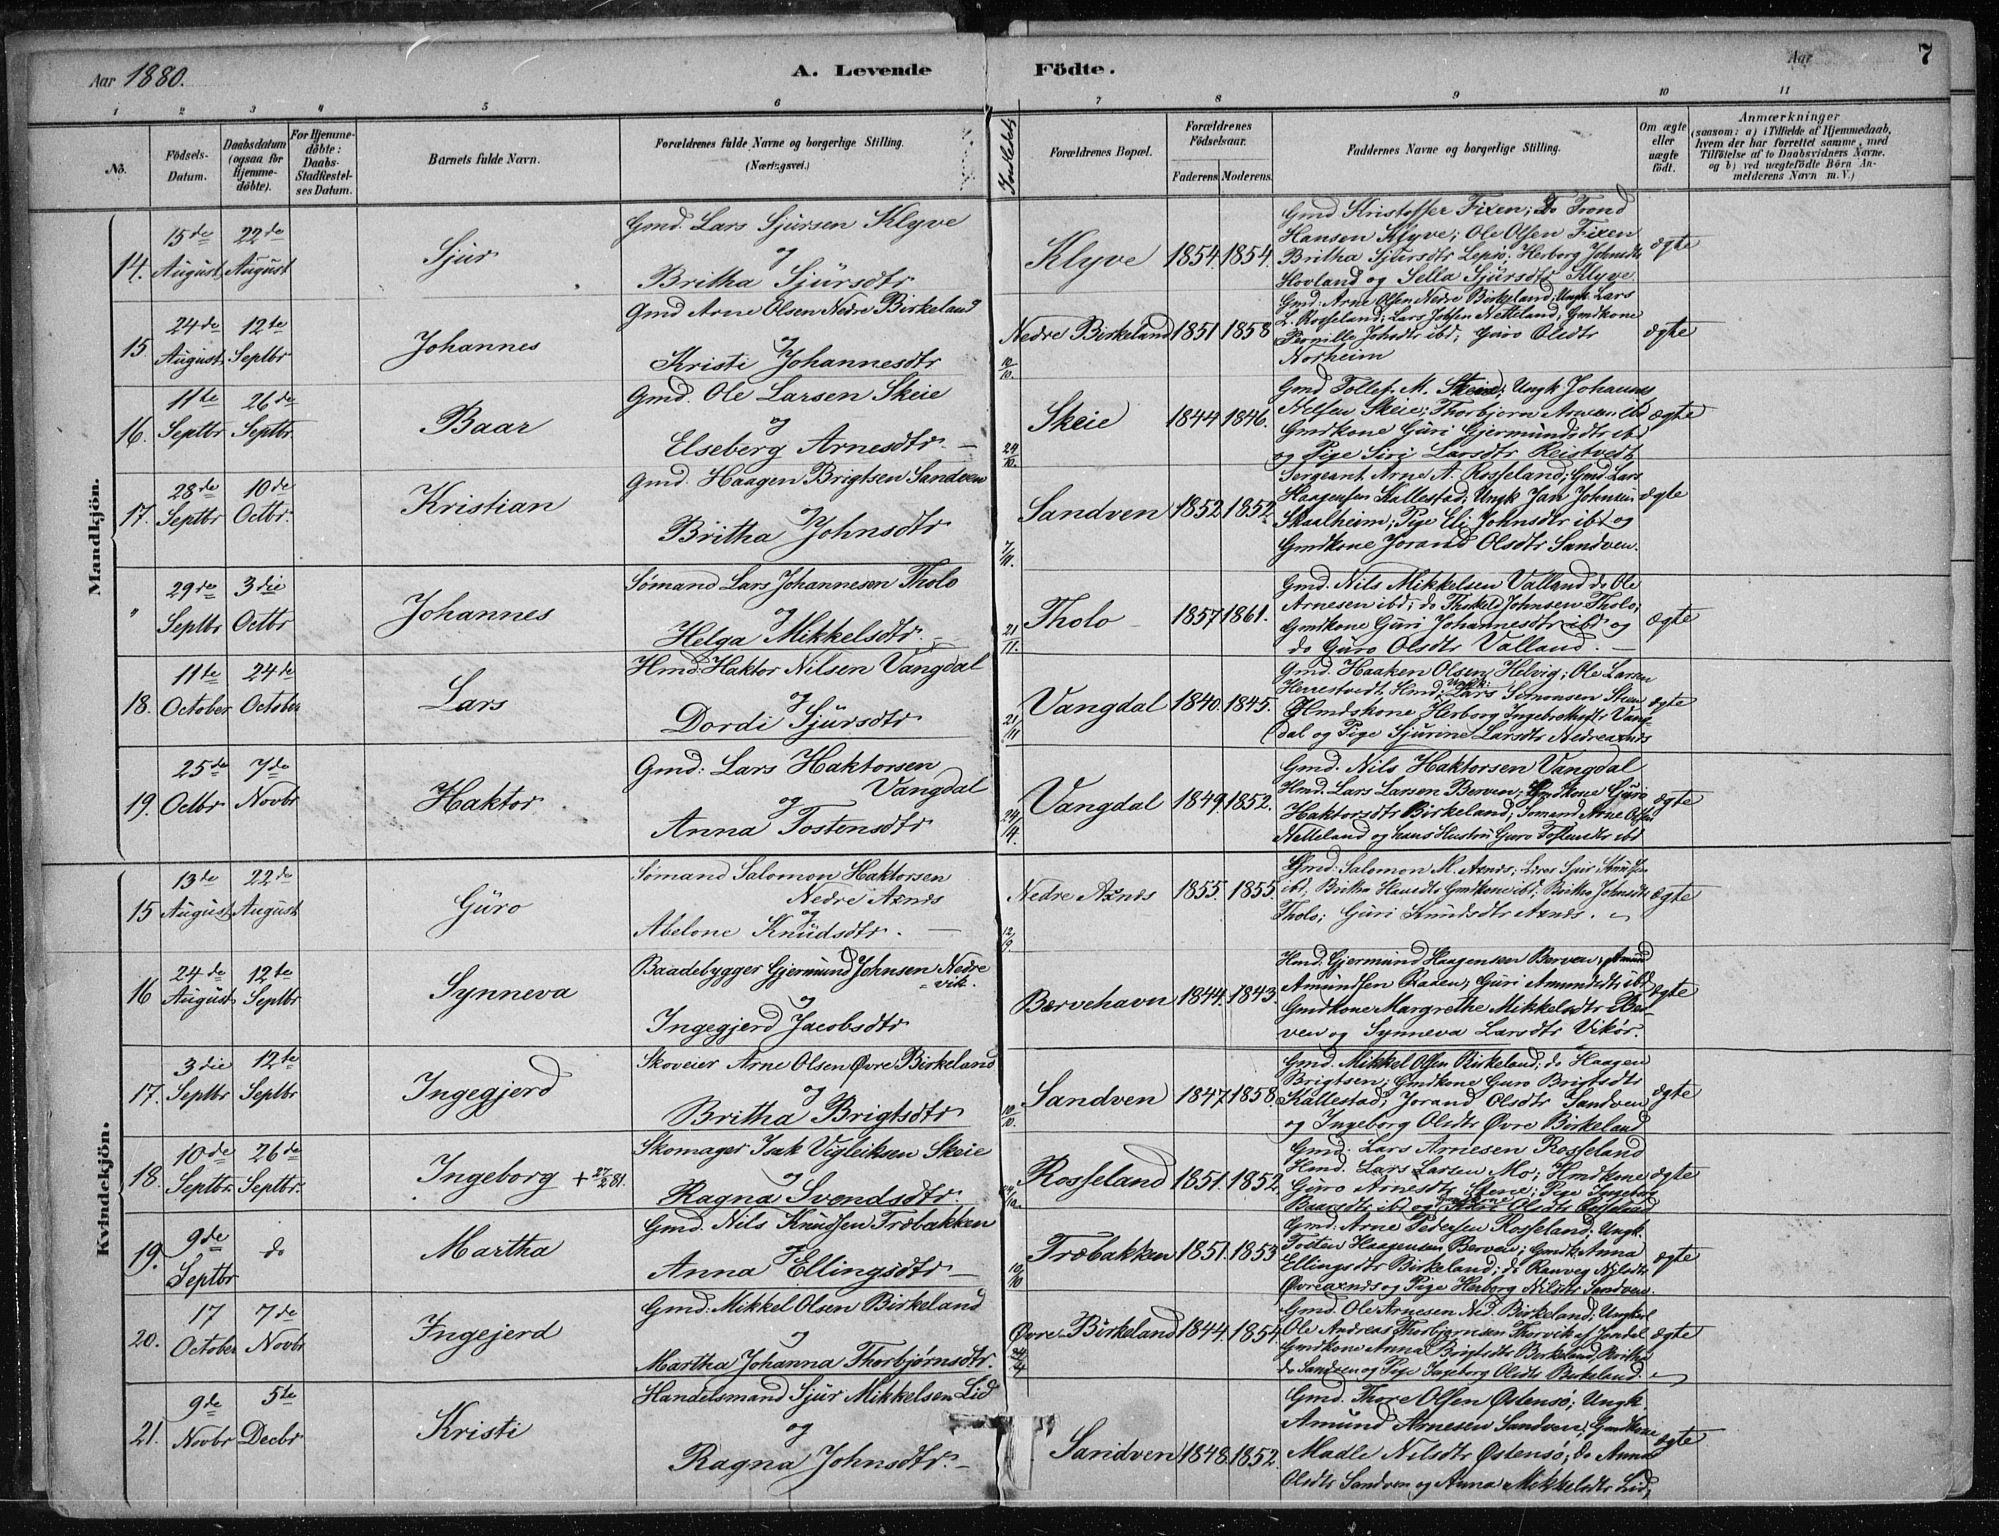 Aar 1880.
A. Levende Födte.
Aar
7
1 2 3 4 5 6 7 8 9 10 11
No.
Födsels-Datum.
Daabsdatum (ogsaa for Hjemme-döbte).
For Hjemme-döbte: Daabs-Stadfæstel-ses Datum.
Barnets fulde Navn.
Forældrenes fulde Navne og borgerlige Stilling.
(Næringsvei.)
Forældrenes Bopæl.
Forældrenes Födselsaar.
Faderens. Moderens.
Faddernes Navne og borgerlige Stilling.
Om ægte eller uægte födt.
Anmærkninger
(saasom: a) i Tilfælde af Hjemmedaab, hvem der har forrettet samme, med Tilföielse af to Daabsvidners Navne. og b) ved uægtefödte Börn An-melderens Navn m. V.)
Mandkjön.
14. 15de August 22de August
Sjur
Gmd. Lars Sjursen Klyve
og
Britha Sjursdtr
Klyve 1854. 1854.
Gmd Kristoffer Fixen; Do Trond
Hansen Klyve; Ole Olsen Fixen
Britha Sjursdtr Lepsö; Herborg Johnsdtr
Hovland og Sella Sjursdtr Klyve.
ægte
15. 24de August 12te Septbr
Johannes
Gmd Arne Olsen Nedre Birkeland
og
Kristi Johannesdtr
Nedre Birkeland 1851 1858
10/10.
Gmd: Arne Olsen Nedre Birkeland; Ungk. Lars
L. Rosseland; Lars Netteland; Gmdkone
Pernille Johsdtr ibd; Guro Olsdtr
Norheim
ægte
16. 11te Septbr 26de Septbr.
Baar
Gmd. Ole Larsen Skeie
og
Elseberg Arnesdtr. —
Skeie 1844 1846.
24/10.
Gmd Tollef M. Skeie; Ungk Johannes
Nelsen Skeie; Thorbjørn Arnesen ibd
Gmdkone Guri Gjermundsdtr ibd
og Pige Siri Larsdtr Reistvedt
ægte
17. 28de Septbr 10de Octbr.
Kristian
Gmd. Haagen Brigtsen Sandven
og
Britha Johnsdtr
Sandven 1852 1852.
7/11.
Sergeant Arne A. Rosseland; Gmd Lars
Haagensen Kallestad; Ungk Jan Johnsen
Skaalheim; Pige Eli Johnsdtr ibd og
Gmdkone Jorand Olsdtr Sandven.
ægte
" 29de Septbr 3die Octbr
Johannes
Sømand Lars Johannesen Tholo
og
Helga Mikkelsdtr
Tholo 1857 1861.
21/11.
Gmd. Nils Mikkelsen Valland do Ole
Arnesen ibd; do Thorkeld Johnsen Tholo;
Gmdkone Guri Johannesdtr ibd og
do Guro Olsdtr Valland. —
ægte
18. 11te October 24de October
Lars
Hmd. Haktor Nilsen Vangdal
og
Dordi Sjursdtr
Vangdal 1840. 1845.
21/11
Gmd. Haaken Olsen Helvig; Ole Larsen
Henestvedt Hmd; Ungk: Lars Simonsen Steen
Hmdskone Herborg Ingebrethsdtr Vang-
dal og Pige Sjurine Larsdtr Nedreaxnæs
ægte
19. 25de Octbr 7de Novbr
Haktor
Gmd: Lars Haktorsen
Vangdal
og
Anna Tostensdtr
Vangdal 1849. 1852.
Gmd. Nils Haktorsen Vangdal
Hmd. Lars Larsen Berven; Gmdkone Guro
Haktorsdtr Birkeland; Sømand Arne Olsen
Netteland og hans Hustru Guro Tostensdtr ibd
ægte
Kvindekjön.
15 13de August 22de August
Guro
Sømand Salomon Haktorsen
Nedre Axnæs
og
Abelone Knudsdtr. —
Nedre Axnæs 1855. 1855.
12/9.
Gmd: Salomon M. Axnæs; Sjur
ibd, Britha Gmdkone ibd; Britha Johnsdtr
Tholo; Guri Knudsdtr Axnæs.
ægte
16 24de August 12te Septbr
Synneva
Baadebygger Gjermund Johnsen Nedre
vik.
og
Ingegjerd Jacobsdtr
Bervehavn 1844. 1843.
Hmd. Gjermund Haagensen Berven; Amund
Amundsen Raaen; Guri Amundsdtr ibd
Gmdkone Margrethe Mikkelsdtr Ber-
ven og Synneva Larsdtr Vikør.
ægte
17. 3die Septbr 12te Septbr
Ingegjerd
Skoveier Arne Olsen Øvre Birkeland
og
Britha Brigtsdtr
Sandven 1847 1858.
10/10.
Gmd. Mikkel Olsen Birkeland; do Haagen
Brigtsen; Gmdkone Guro Brigtsdtr
Kallestad; Jorand Olsdtr Sandven
og Ingeborg Olsdtr Øvre Birkeland
ægte
18. 10de Septbr. 26de Septbr.
Ingeborg + 27/2 81.
Skomager Isak Vigleiksen Skeie
og
Ragna Svendsdtr.
Rosseland 1851. 1852.
24/10.
Gmd. Lars Arnesen Rosseland
Hmd. Lars Larsen Mo; Hmdkone
Guro Arnesdtr Stene; Pige Ingeborg
Baarsdtr ibd og Olsdtr Rosseland
ægte
19. 9de Septbr do
Martha
Gmd. Nils Knudsen Træbakken
og
Anna Ellingsdtr —
Træbakken 1851. 1853
10/10
Gmd. Arne Pedersen Rosseland; Ungk.
Tosten Haagensen Berven; Gmdk. Anna
Ellingsdtr Birkeland; do Ranveg Nilsdtr
Øvreaxnæs og Pige Herborg Nilsdtr Sandven.
ægte
20. 17 October 7de Novbr
Ingejerd
Gmd: Mikkel Olsen Birkeland
og
Martha Johanna Thorbjørnsdtr.
Øvre Birkeland 1844. 1854.
Gmd. Ole Arnesen Ned. Birkeland; Ungkarl
Ole Andreas Thorbjørnsen Thorvik af Jondal
Gmdkone Anna Brigtsdtr Birkeland; Britha
do Sandven og Pige Ingeborg Olsdtr Birkeland.
ægte
21. 9de Novbr 5te Decbr
Kristi
Handelsmand Sjur Mikkelsen Lid
og
Ragna Johnsdtr. —
Sandven 1848. 1852.
Gmd. Thore Olsen Østensø; Ungk.
Amund Arnesen Sandven; Gmdkone
Madle Nilsdtr Østensø; do Anna
Olsdtr Sandven og Anna Mikkelsdtr Lid;
ægte